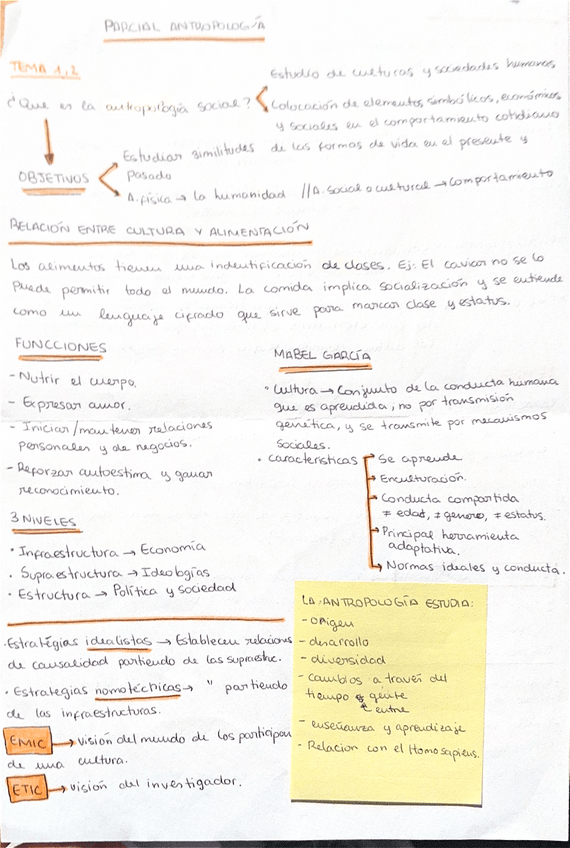 PARCIAL ANTROPOLOGÍA
TEMA 1,2
¿Que es la antropología social?
Estudio de culturas y sociedades humanas
Colocación de elementos simbólicos, económicos
y sociales en el comportamiento cotidiano
OBJETIVOS
Estudiar similitudes de las formas de vida en el presente y
pasado
A. física → la humanidad // A. social o cultural → comportamiento
RELACIÓN ENTRE CULTURA Y ALIMENTACIÓN
Los alimentos tienen una indentificación de clases. Ej: El caviar no se lo
puede permitir todo el mundo. La comida implica socialización y se entiende
como un lenguaje cifrado que sirve para marcar clase y estatus.
FUNCCIONES
- Nutrir el cuerpo.
- Expresar amor.
- Iniciar/mantener relaciones
personales y de negocios.
- Reforzar autoestima y ganar
reconocimiento.
3 NIVELES
• Infraestructura → Economía
• Supraestructura → Ideologías
• Estructura → Política y sociedad
MABEL GARCÍA
• Cultura → Conjunto de la conducta humana
que es aprendida, no por transmisión
genética, y se transmite por mecanismos
sociales.
• características
→ Se aprende
→ Enculturación.
→ Conducta compartida
≠ edad, ≠ genero, ≠ estatus.
→ Principal herramienta
adaptativa.
→ Normas ideales y conducta.
• Estratégias idealistas → Establecen relaciones
de causalidad partiendo de las supraestruc.
• Estrategias nomotéchicas → " partiendo
de las infraestructuras.
EMIC → visión del mundo de los participan
de una cultura.
ETIC → visión del investigador.
LA ANTROPOLOGÍA ESTUDIA:
- origen
- desarrollo
- diversidad
- cambios a través del
tiempo y gente
entre
- enseñanza y aprendizaje
- Relacion con el Homo sapiens.